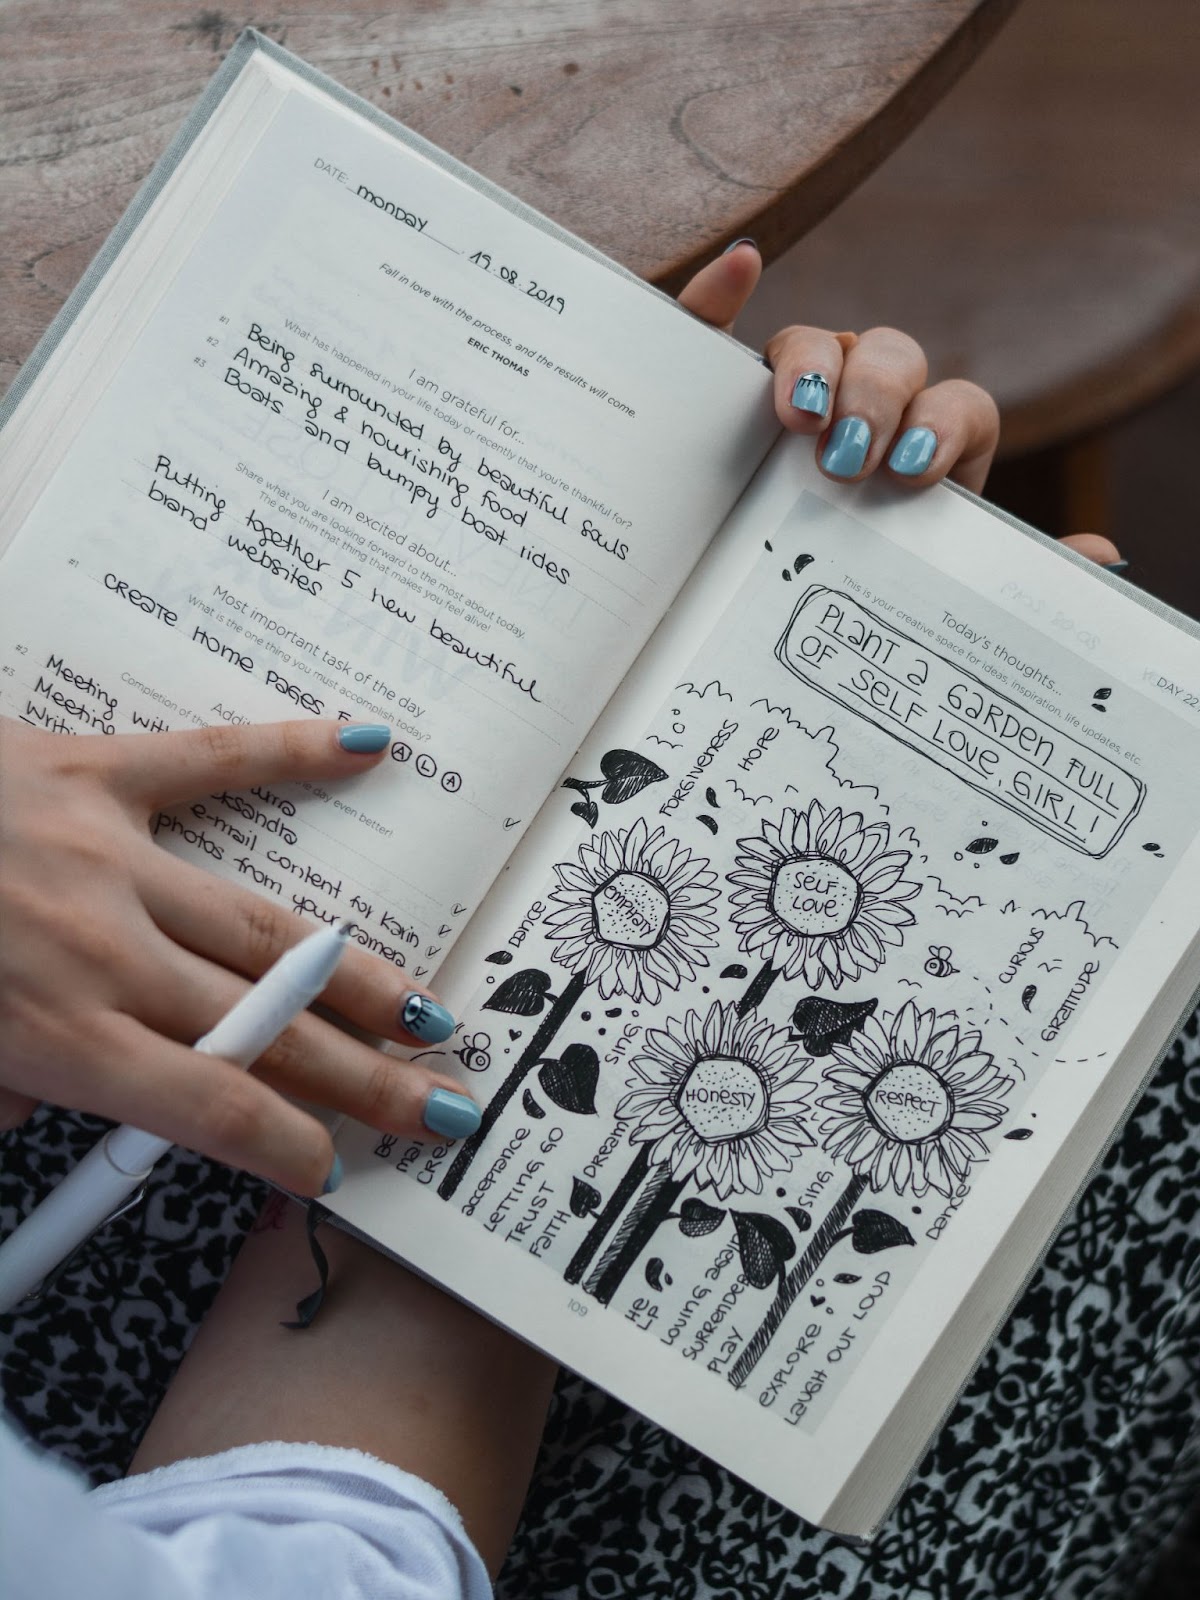 DATE: monday 19.08.2019
Fall in love with the process, and the results will come.
ERIC THOMAS
I am grateful for...
What has happened in your life today or recently that you're thankful for?
#1 Being surrounded by beautiful souls
#2 Amazing & nourishing food
#3 Boats and bumpy boat rides
I am excited about...
Share what you are looking forward to the most about today.
The one thin that thing that makes you feel alive!
Putting together 5 new beautiful
brand websites
Most important task of the day
What is the one thing you must accomplish today?
#1 CREATE HOME PAGES
ALA
Completion of the
day even better!
#2 Meeting with
#3 Meeting
e-mail content for Karin
photos from your camera
DAY 22
Today's thoughts...
This is your creative space for ideas, inspiration, life updates, etc.
PLANT A GARDEN FULL
OF SELF LOVE, GIRL!
FORGIVENESS
HOPE
EMPHATY
SELF
LOVE
Dance
CURIOUS
GRATITUDE
SING
HONESTY
RESPECT
acceptance
LETTING GO
TRUST
FAITH
DREAM
SING
Dance
HE
LP
LOVING again
SURRENDER
PLAY
EXPLORE
LAUGH OUT LOUD
109